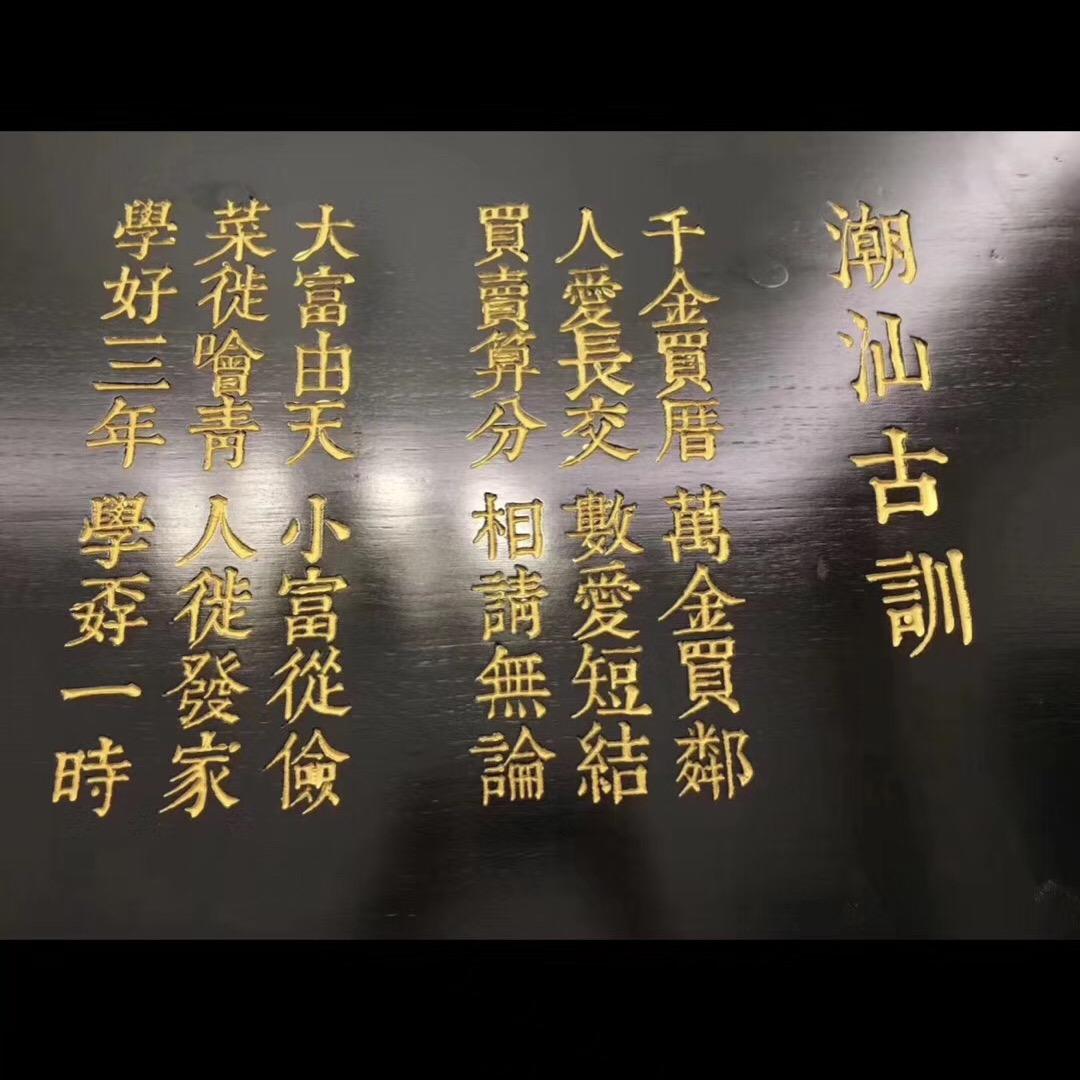 潮汕古訓
千金買厝 萬金買鄰
人愛長交 數愛短結
買賣算分 相請無論
大富由天 小富從儉
菜徙噲青 人徙發家
學好三年 學孬一時